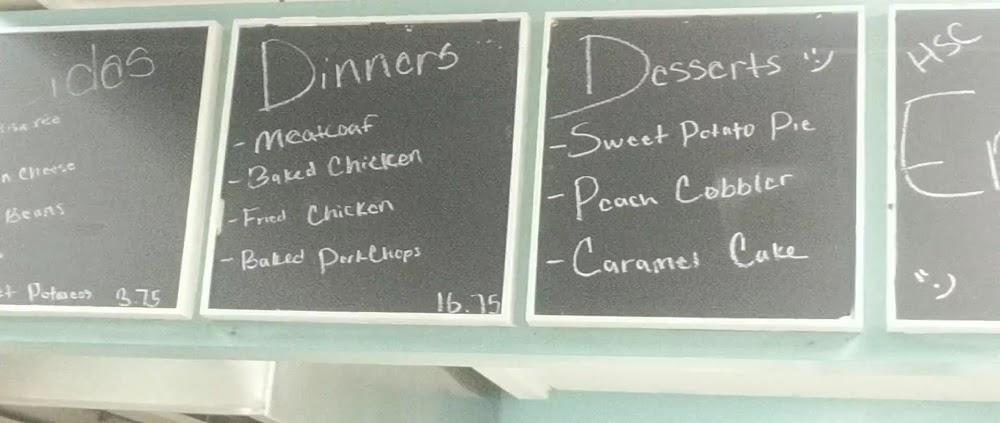 ides
rice
n Cheese
Beans
Potatoes 3.75
Dinners
- Meatloaf
- Baked Chicken
- Fried Chicken
- Baked PorkChops
16.75
Desserts :)
- Sweet Potato Pie
- Peach Cobbler
- Caramel Cake
HSC
E
:)